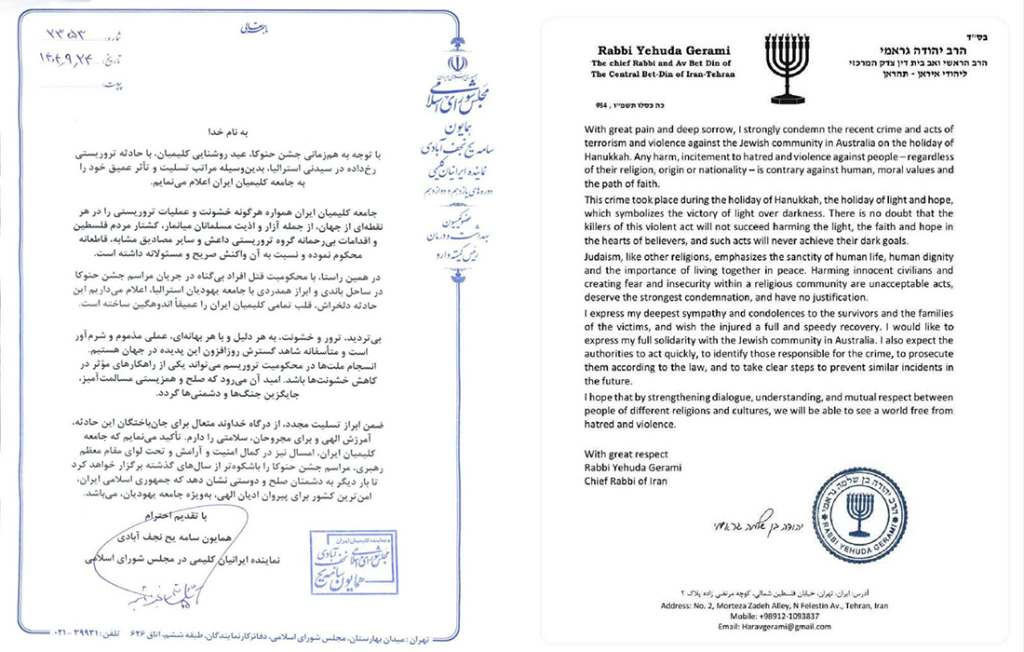 باسمه تعالی
شماره: ۷۳۵۳
تاریخ: ۱۴۰۴,۹,۲۴
پیوست:
جمهوری اسلامی ایران
مجلس شورای اسلامی
همایون
سامه یح نجف آبادی
نماینده ایرانیان کلیمی
دوره‌های یازدهم و دوازدهم
عضو کمیسیون
بهداشت و درمان
به نام خدا
با توجه به هم‌زمانی جشن حنوکا، عید روشنایی کلیمیان، با حادثه تروریستی
رخ‌داده در سیدنی استرالیا، بدین‌وسیله مراتب تسلیت و تأثر عمیق خود را
به جامعه کلیمیان ایران اعلام می‌نمایم.
جامعه کلیمیان ایران همواره هرگونه خشونت و عملیات تروریستی را در هر
نقطه‌ای از جهان، از جمله آزار و اذیت مسلمانان میانمار، کشتار مردم فلسطین
و اقدامات بی‌رحمانه گروه تروریستی داعش و سایر مصادیق مشابه، قاطعانه
محکوم نموده و نسبت به آن واکنش صریح و مسئولانه داشته است.
در همین راستا، با محکومیت قتل افراد بی‌گناه در جریان مراسم جشن حنوکا
در ساحل باندی و ابراز همدردی با جامعه یهودیان استرالیا، اعلام می‌داریم این
حادثه دلخراش، قلب تمامی کلیمیان ایران را عمیقاً اندوهگین ساخته است.
بی‌تردید، ترور و خشونت، به هر دلیل و با هر بهانه‌ای، عملی مذموم و شرم‌آور
است و متأسفانه شاهد گسترش روزافزون این پدیده در جهان هستیم.
انسجام ملت‌ها در محکومیت تروریسم می‌تواند یکی از راهکارهای مؤثر در
کاهش خشونت‌ها باشد. امید آن می‌رود که صلح و همزیستی مسالمت‌آمیز،
جایگزین جنگ‌ها و دشمنی‌ها گردد.
ضمن ابراز تسلیت مجدد، از درگاه خداوند متعال برای جان‌باختگان این حادثه،
آمرزش الهی و برای مجروحان، سلامتی را دارم. تأکید می‌نمایم که جامعه
کلیمیان ایران، امسال نیز در کمال امنیت و آرامش و تحت لوای مقام معظم
رهبری، مراسم جشن حنوکا را باشکوه‌تر از سال‌های گذشته برگزار خواهد کرد
تا بار دیگر به دشمنان صلح و دوستی نشان دهد که جمهوری اسلامی ایران،
امن‌ترین کشور برای پیروان ادیان الهی، به‌ویژه جامعه یهودیان، می‌باشد.
با تقدیم احترام
همایون سامه یح نجف آبادی
نماینده ایرانیان کلیمی در مجلس شورای اسلامی
نماینده کلیمیان ایران
مجلس شورای اسلامی
همایون سامه یح نجف آبادی
تهران: میدان بهارستان، مجلس شورای اسلامی، دفاتر کار نمایندگان، طبقه ششم، اتاق ۶۲۶ تلفن: ۳۹۹۳۱-۰۲۱
בס״ד
Rabbi Yehuda Gerami
The chief Rabbi and Av Bet Din of
The Central Bet-Din of Iran-Tehran
הרב יהודה גראמי
הרב הראשי ואב בית דין צדק המרכזי
ליהודי איראן - תהראן
כה בכסלו תשפ״ו , 954
With great pain and deep sorrow, I strongly condemn the recent crime and acts of
terrorism and violence against the Jewish community in Australia on the holiday of
Hanukkah. Any harm, incitement to hatred and violence against people – regardless
of their religion, origin or nationality – is contrary against human, moral values and
the path of faith.
This crime took place during the holiday of Hanukkah, the holiday of light and hope,
which symbolizes the victory of light over darkness. There is no doubt that the
killers of this violent act will not succeed harming the light, the faith and hope in
the hearts of believers, and such acts will never achieve their dark goals.
Judaism, like other religions, emphasizes the sanctity of human life, human dignity
and the importance of living together in peace. Harming innocent civilians and
creating fear and insecurity within a religious community are unacceptable acts,
deserve the strongest condemnation, and have no justification.
I express my deepest sympathy and condolences to the survivors and the families
of the victims, and wish the injured a full and speedy recovery. I would like to
express my full solidarity with the Jewish community in Australia. I also expect the
authorities to act quickly, to identify those responsible for the crime, to prosecute
them according to the law, and to take clear steps to prevent similar incidents in
the future.
I hope that by strengthening dialogue, understanding, and mutual respect between
people of different religions and cultures, we will be able to see a world free from
hatred and violence.
With great respect
Rabbi Yehuda Gerami
Chief Rabbi of Iran
יהודה בן שלמה גראמי
הרב יהודה בן שלמה גראמי
RABBI YEHUDA GERAMI
آدرس: ایران، تهران، خیابان فلسطین شمالی، کوچه مرتضی زاده پلاک ۲
Address: No. 2, Morteza Zadeh Alley, N Felestin Av., Tehran, Iran
Mobile: +98912-1093837
Email: Haravgerami@gmail.com